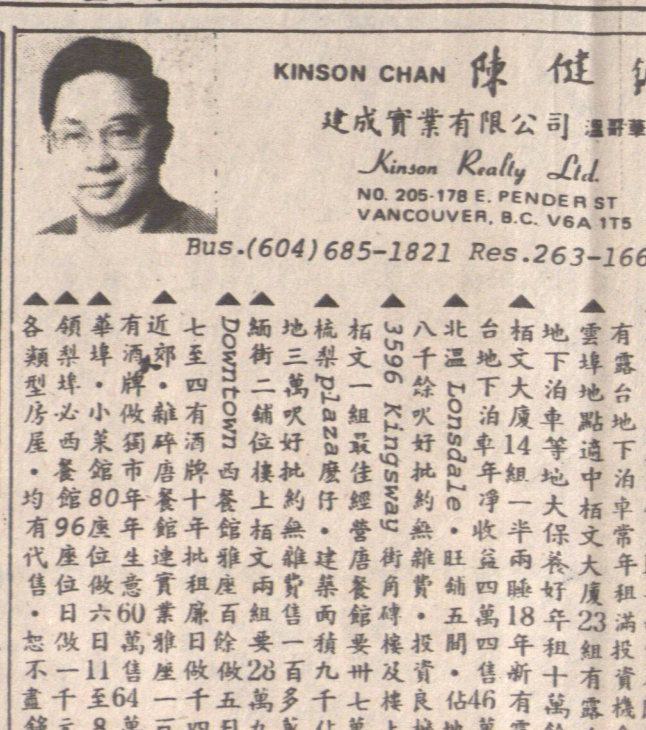 KINSON CHAN 陳健
建成實業有限公司 溫哥華
Kinson Realty Ltd.
NO. 205-178 E. PENDER ST
VANCOUVER, B.C. V6A 1T5
Bus.(604)685-1821 Res.263-166
有露台地下泊車常年租滿投資機
▲雲埠地點適中柏文大廈23組有露
地下泊車等地大保養好年租十萬餘
▲柏文大廈14組一半兩睡18年新有
台地下泊車年净收益四萬四售46萬
▲北溫Lonsdale·旺舖五間·佔地
八千餘呎好批約無雜費·投資良
▲3596 Kingsway街角磚樓及樓上
柏文一組最佳經營唐餐館要卅七萬
▲梳梨plaza麼仔·建築面積九千
地三萬呎好批約無雜費售一百多萬
▲緬街二舖位樓上柏文兩組要28萬九
▲Downtown西餐館雅座百餘做五
七至四有酒牌十年批租廉日做千四
▲近郊·雜碎唐餐館連實業雅座一百
有酒牌做獨市年年生意60萬售64萬
▲華埠·小菜館80座位做六日11至8
▲領梨埠必西餐館96座位日做一千元
▲各類型房屋·均有代售·恕不盡錄